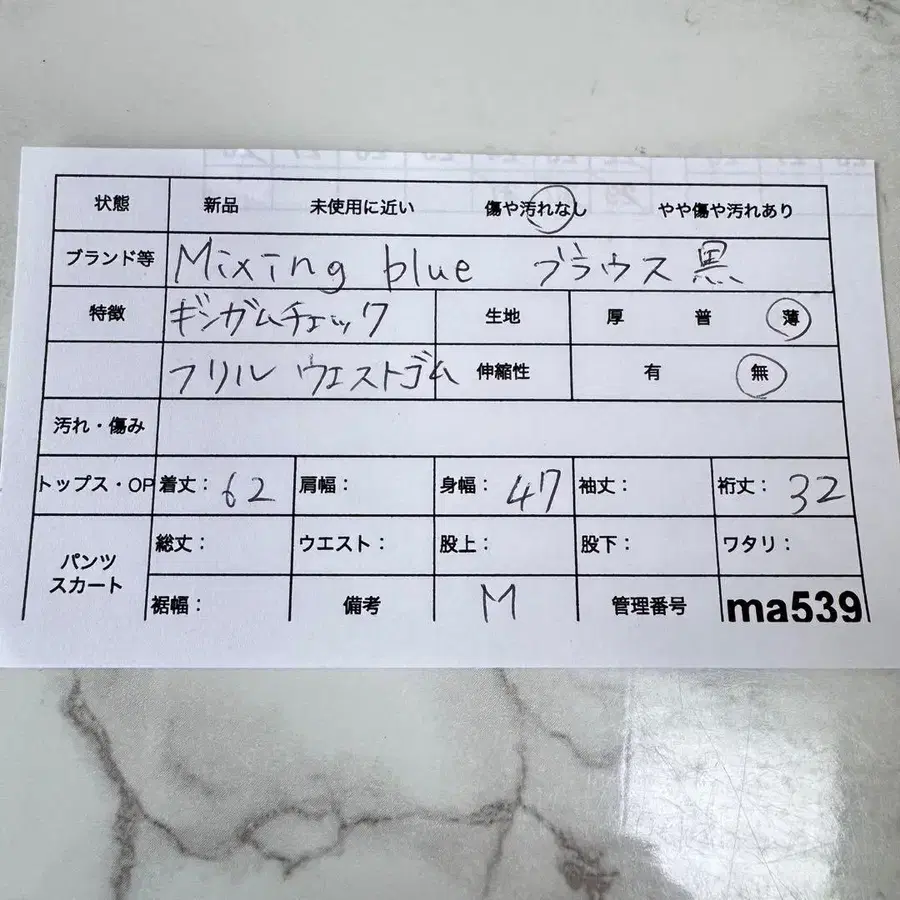 状態 新品 未使用に近い 傷や汚れなし やや傷や汚れあり
ブランド等 Mixing blue ブラウス 黒
特徴 ギンガムチェック 生地 厚 普 薄
フリル ウエストゴム 伸縮性 有 無
汚れ・傷み
トップス・OP 着丈： 62 肩幅： 身幅： 47 袖丈： 裄丈： 32
パンツ スカート 総丈： ウエスト： 股上： 股下： ワタリ：
裾幅： 備考 M 管理番号 ma539